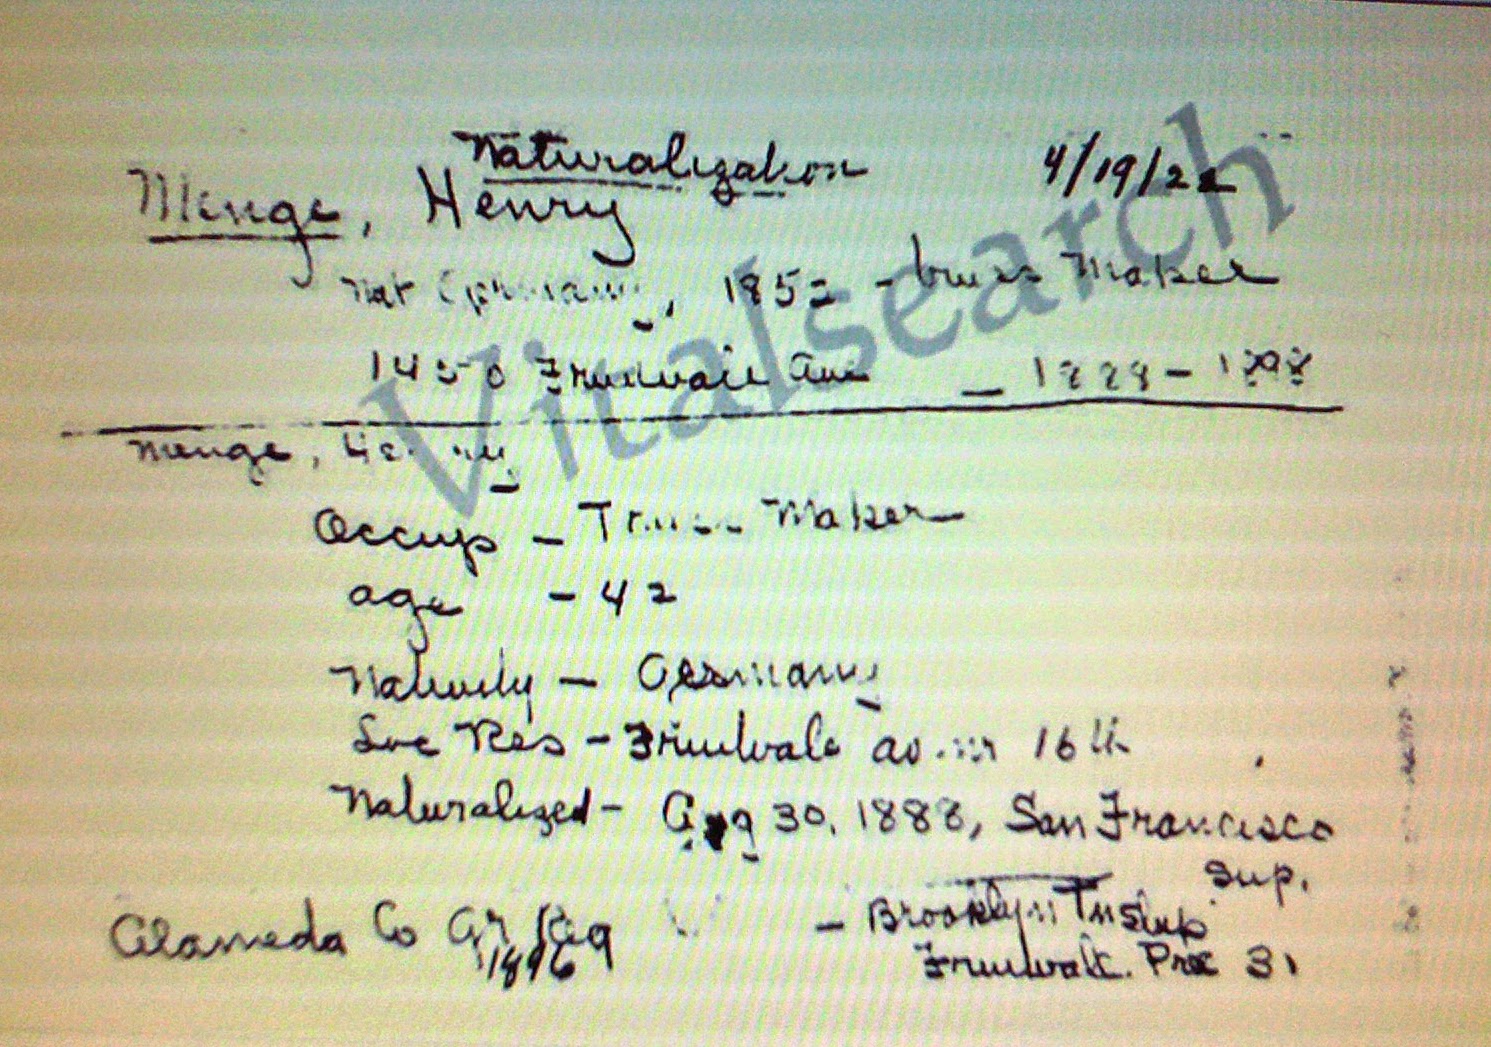 Naturalization 4/19/22
Menge, Henry
Nat Germany, 1852 - truss Maker
1450 Fruitvale Ave —
Menge, Henry
Occup — Truss Maker
age - 42
Nativity — Germany
Loc Res - Fruitvale av. nr 16th
Naturalized - Aug 30, 1888, San Francisco
Sup.
Alameda Co Gr Reg - Brooklyn Tnship
1896 Fruitvale. Prec 31
Vitalsearch